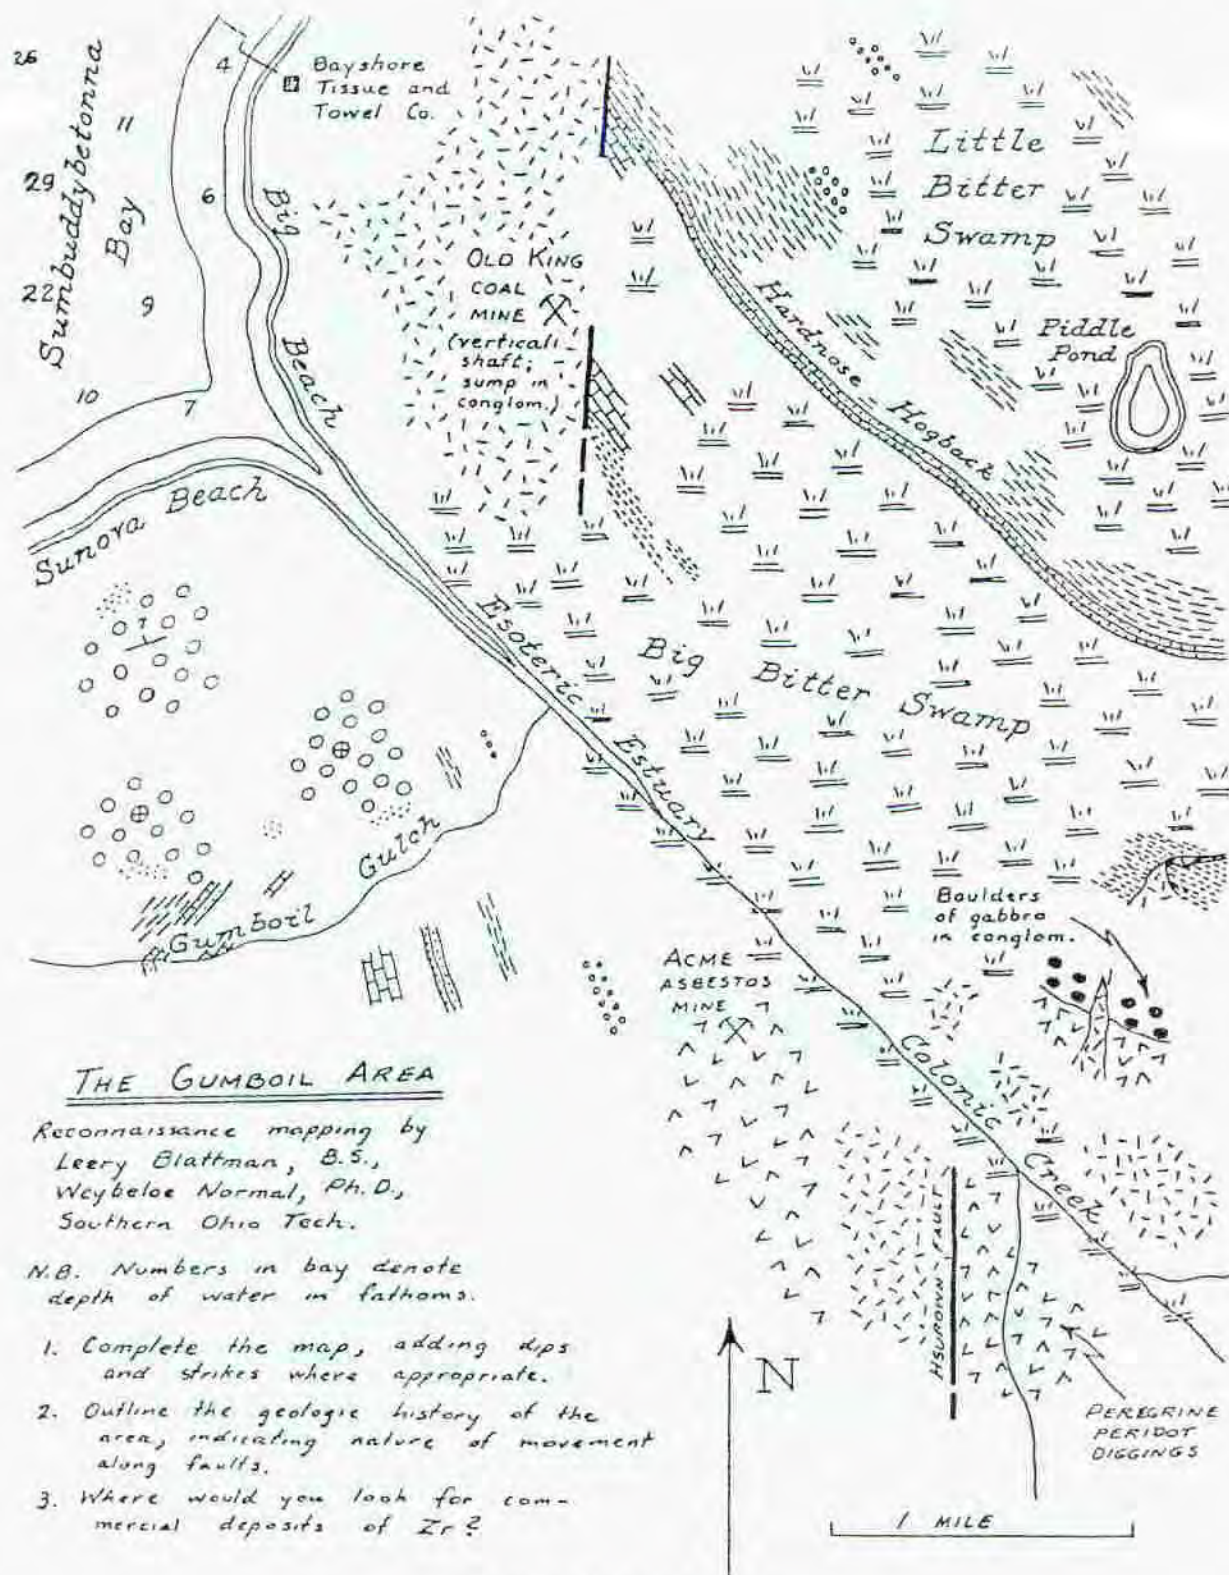 26
4
Bayshore
Tissue and
Towel Co.
Sumbuddybetonna
Bay
11
29
6
22
9
10
7
Big
Beach
Sunova Beach
OLD KING
COAL
MINE
(vertical
shaft;
sump in
conglom.)
Little
Bitter
Swamp
Piddle
Pond
Hardnose
Hogback
Esoteric
Estuary
Big
Bitter
Swamp
7
Gumboil
Gulch
Boulders
of gabbro
in conglom.
ACME
ASBESTOS
MINE
Colonic
Creek
HSURDWN FAULT
PEREGRINE
PERIDOT
DIGGINGS
THE GUMBOIL AREA
Reconnaissance mapping by
Leery Blattman, B.S.,
Weybeloe Normal, Ph.D.,
Southern Ohio Tech.
N.B. Numbers in bay denote
depth of water in fathoms.
1. Complete the map, adding dips
and strikes where appropriate.
2. Outline the geologic history of the
area, indicating nature of movement
along faults.
3. Where would you look for com-
mercial deposits of Zr?
N
1 MILE